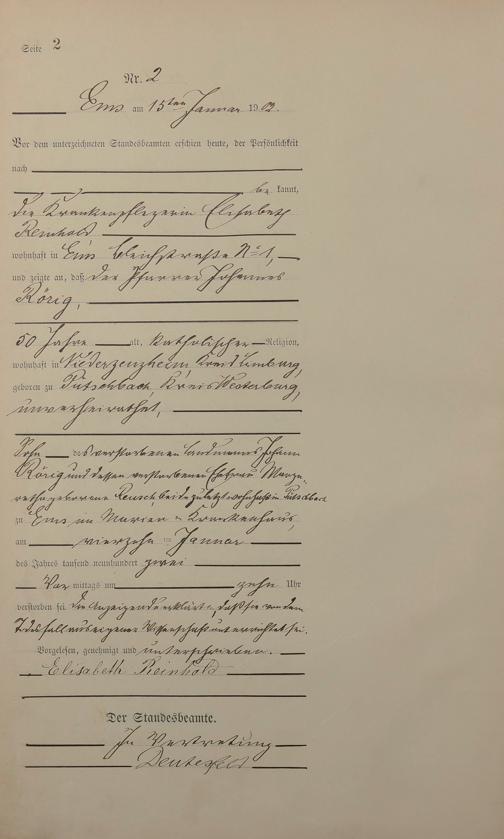 Seite 2
Nr. 2
Ems am 15ten Januar 1902.
Vor dem unterzeichneten Standesbeamten erschien heute, der Persönlichkeit
nach
be kannt,
die Krankenpflegerin Elisabeth
Reinhold
wohnhaft in Ems Bleichstraße No 1,
und zeigte an, daß der Pfarrer Johannes
Rörig,
50 Jahre alt, katholischer Religion,
wohnhaft in Niederzeuzheim, Kreis Limburg,
geboren zu Kreis Westerburg,
unverheirathet,
Sohn des verstorbenen Landmannes Johann
Rörig und dessen verstorbenen Ehefrau Marga-
retha geborene Reusch, beide zuletzt wohnhaft in
zu Ems im Marien-Krankenhaus,
am vierzehn ten Januar
des Jahres tausend neunhundert zwei
Vor mittags um zehn Uhr
verstorben sei. Die Anzeigende erklärte, daß sie von dem
Todesfall aus eigener Wissenschaft unterrichtet sei.
Vorgelesen, genehmigt und unterschrieben.
Elisabeth Reinhold
Der Standesbeamte.
In Vertretung